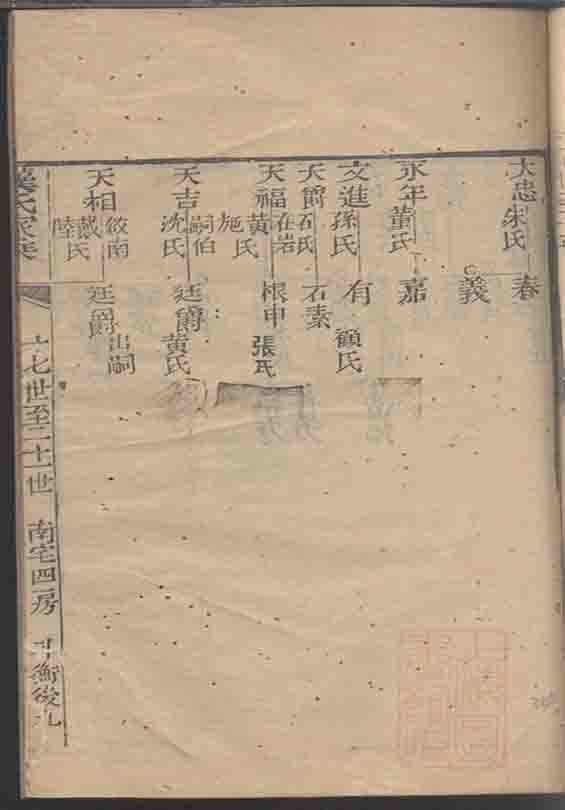 大忠 朱氏 春
義
永年 董氏 嘉
文進 孫氏 有 顧氏
天爵 在岩 石氏 石素
天福 黃氏 施氏 根申 張氏
天吉 嗣伯 沈氏 廷爵 黃氏
天相 敘南 戴氏 陸 廷爵 出嗣
氏家乘
十七世至二十一世 南宅四房 衡後九